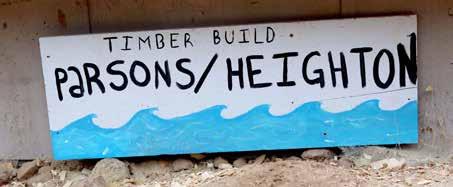 TIMBER BUILD
PARSONS/HEIGHTON